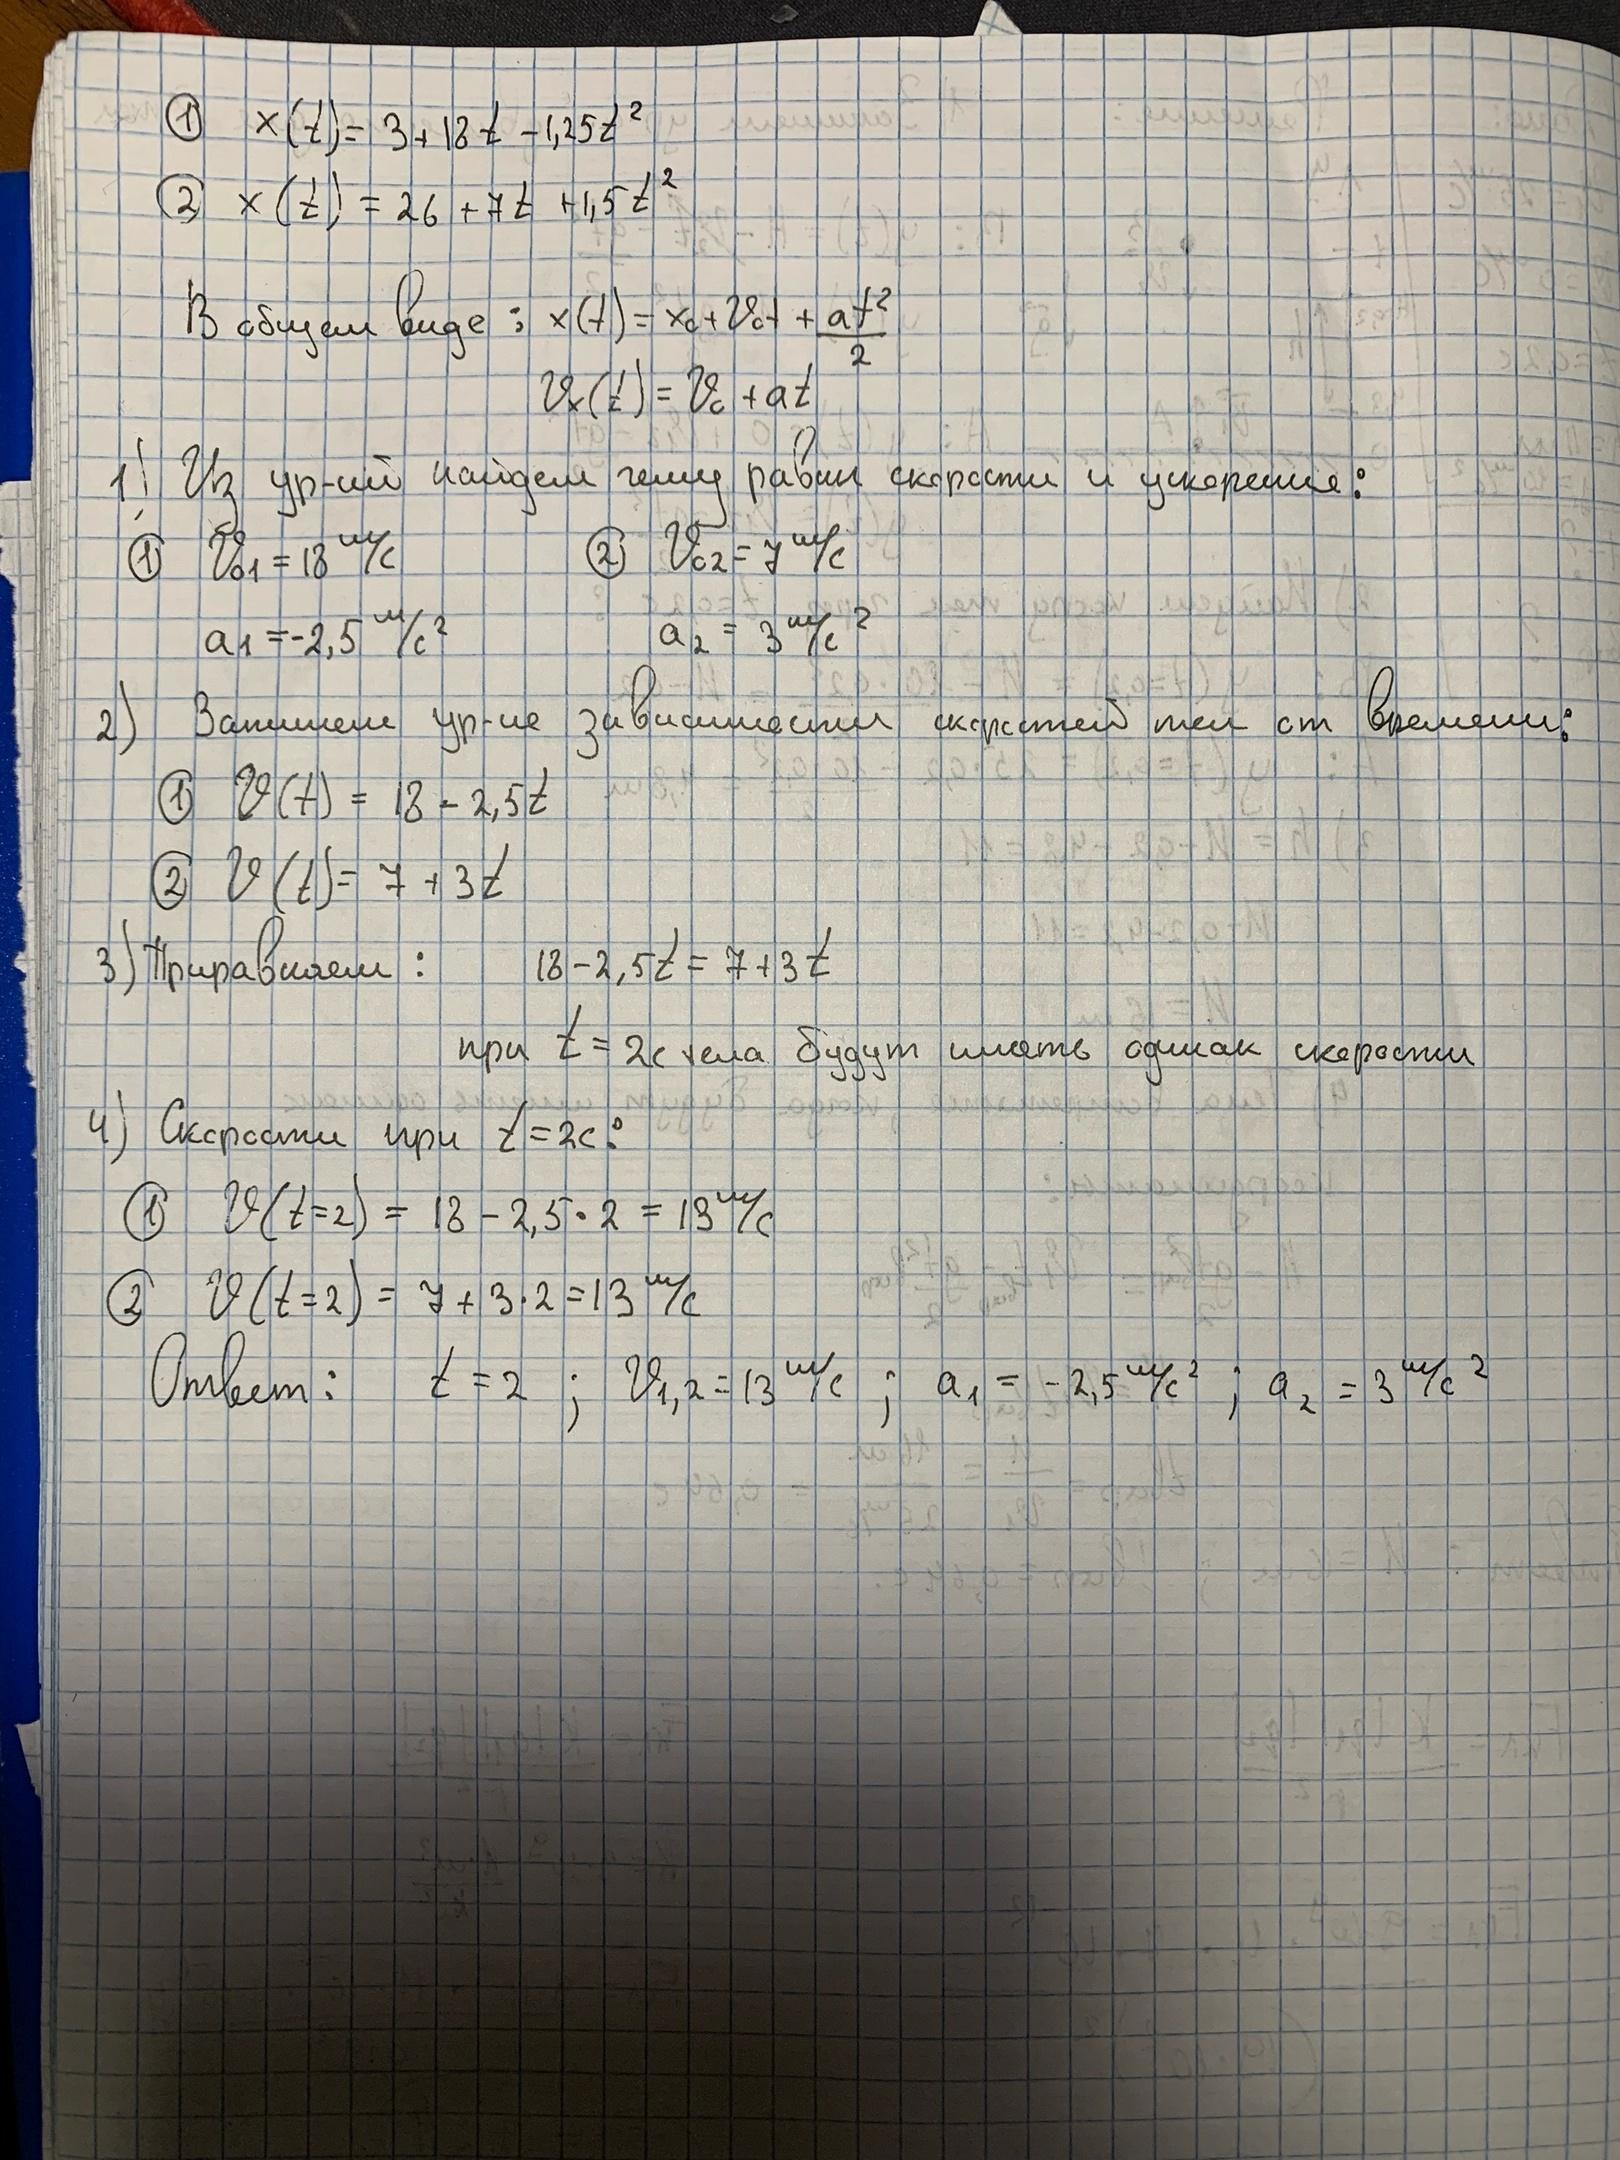 ① x(t) = 3 + 18t - 1,25t²
② x(t) = 26 + 7t + 1,5t²
В общем виде: x(t) = x₀ + V₀t + at²/2
Vₓ(t) = V₀ + at
1) Из ур-ий найдем чему равны скорости и ускорение:
① V₀₁ = 18 м/с ② V₀₂ = 7 м/с
a₁ = -2,5 м/с² a₂ = 3 м/с²
2) Запишем ур-ие зависимости скоростей тел от времени:
① V(t) = 18 - 2,5t
② V(t) = 7 + 3t
3) Приравняем: 18 - 2,5t = 7 + 3t
при t = 2с тела будут иметь одинак скорости
4) Скорости при t = 2с:
① V(t=2) = 18 - 2,5·2 = 13 м/с
② V(t=2) = 7 + 3·2 = 13 м/с
Ответ: t = 2 ; V₁,₂ = 13 м/с ; a₁ = -2,5 м/с² ; a₂ = 3 м/с²